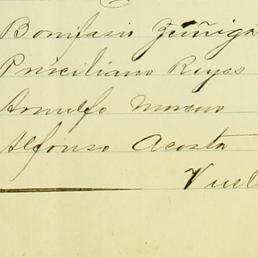 Bonifasio Zúñiga
Prisciliano Reyes
Arnulfo Moreno
Alfonso Acosta
Vuel